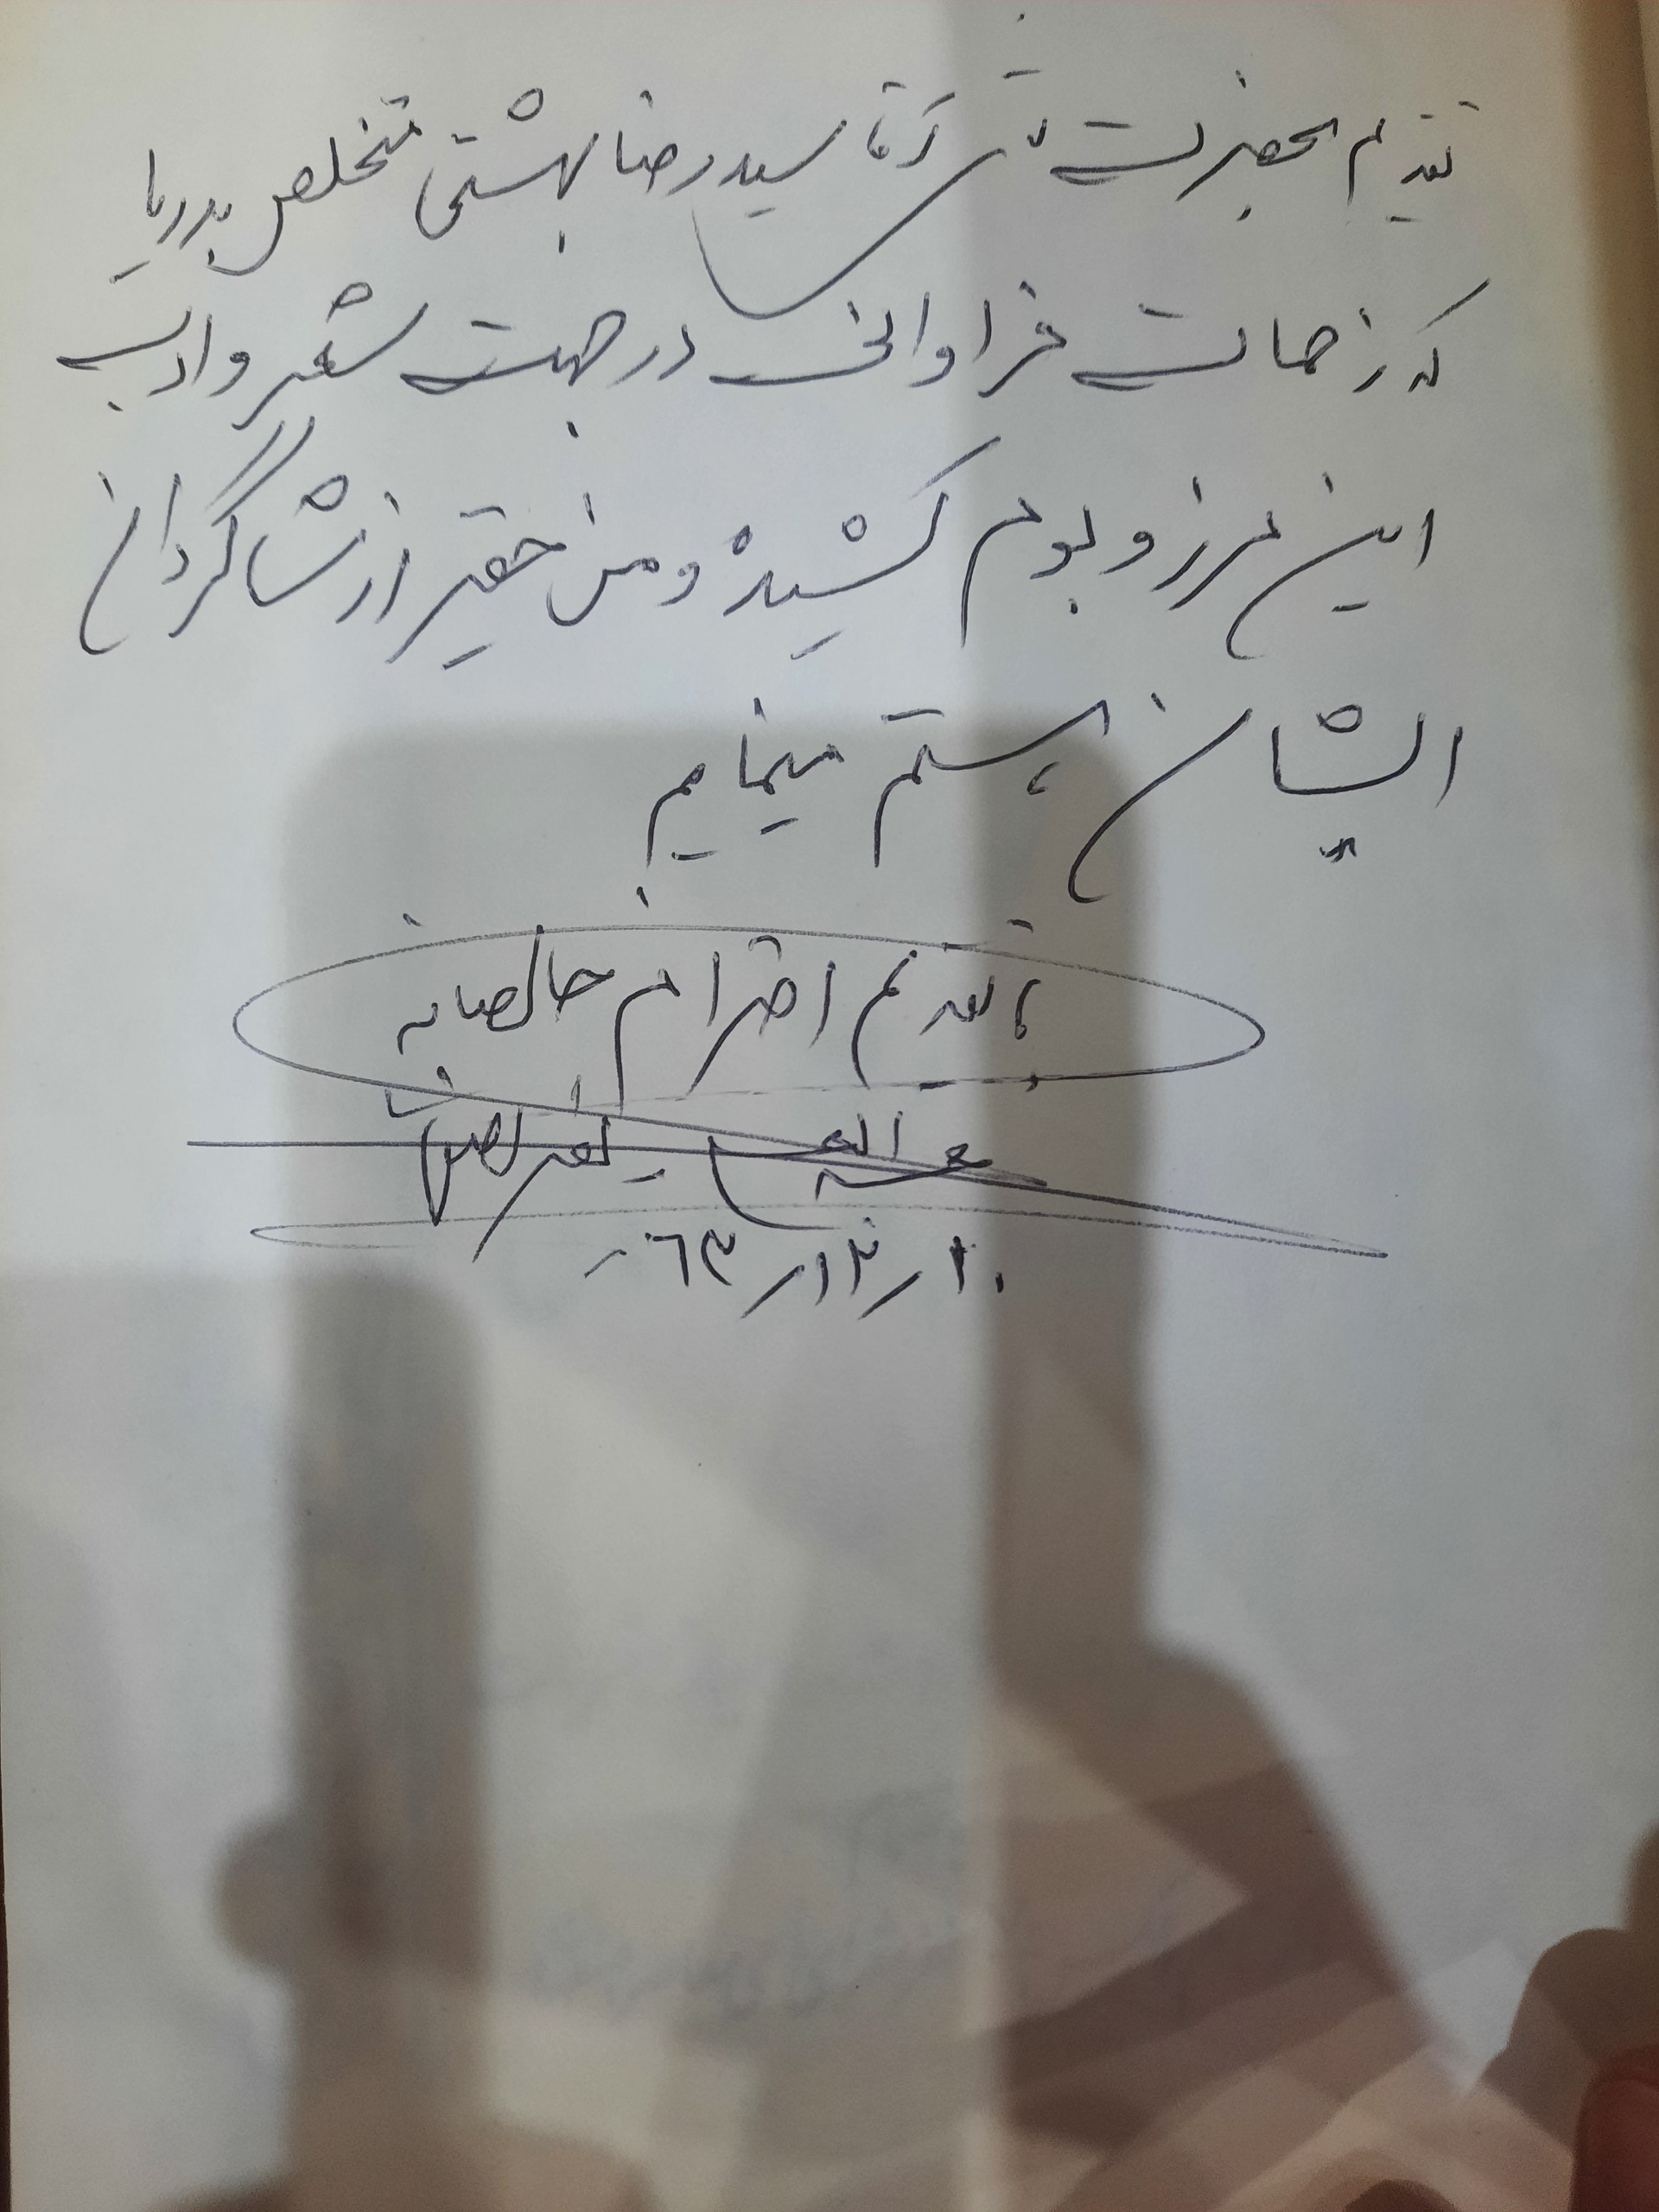 تقدیم بحضرت آقا سید رضا بهشتی متخلص بدریا
که زحمات فراوانی در جهت شعر و ادب
این مرز و بوم کشیده و من حقیر از شاگردان
ایشان هستم مینمایم
با تقدیم احترام خالصانه
۱۰/۱۲/۶۳